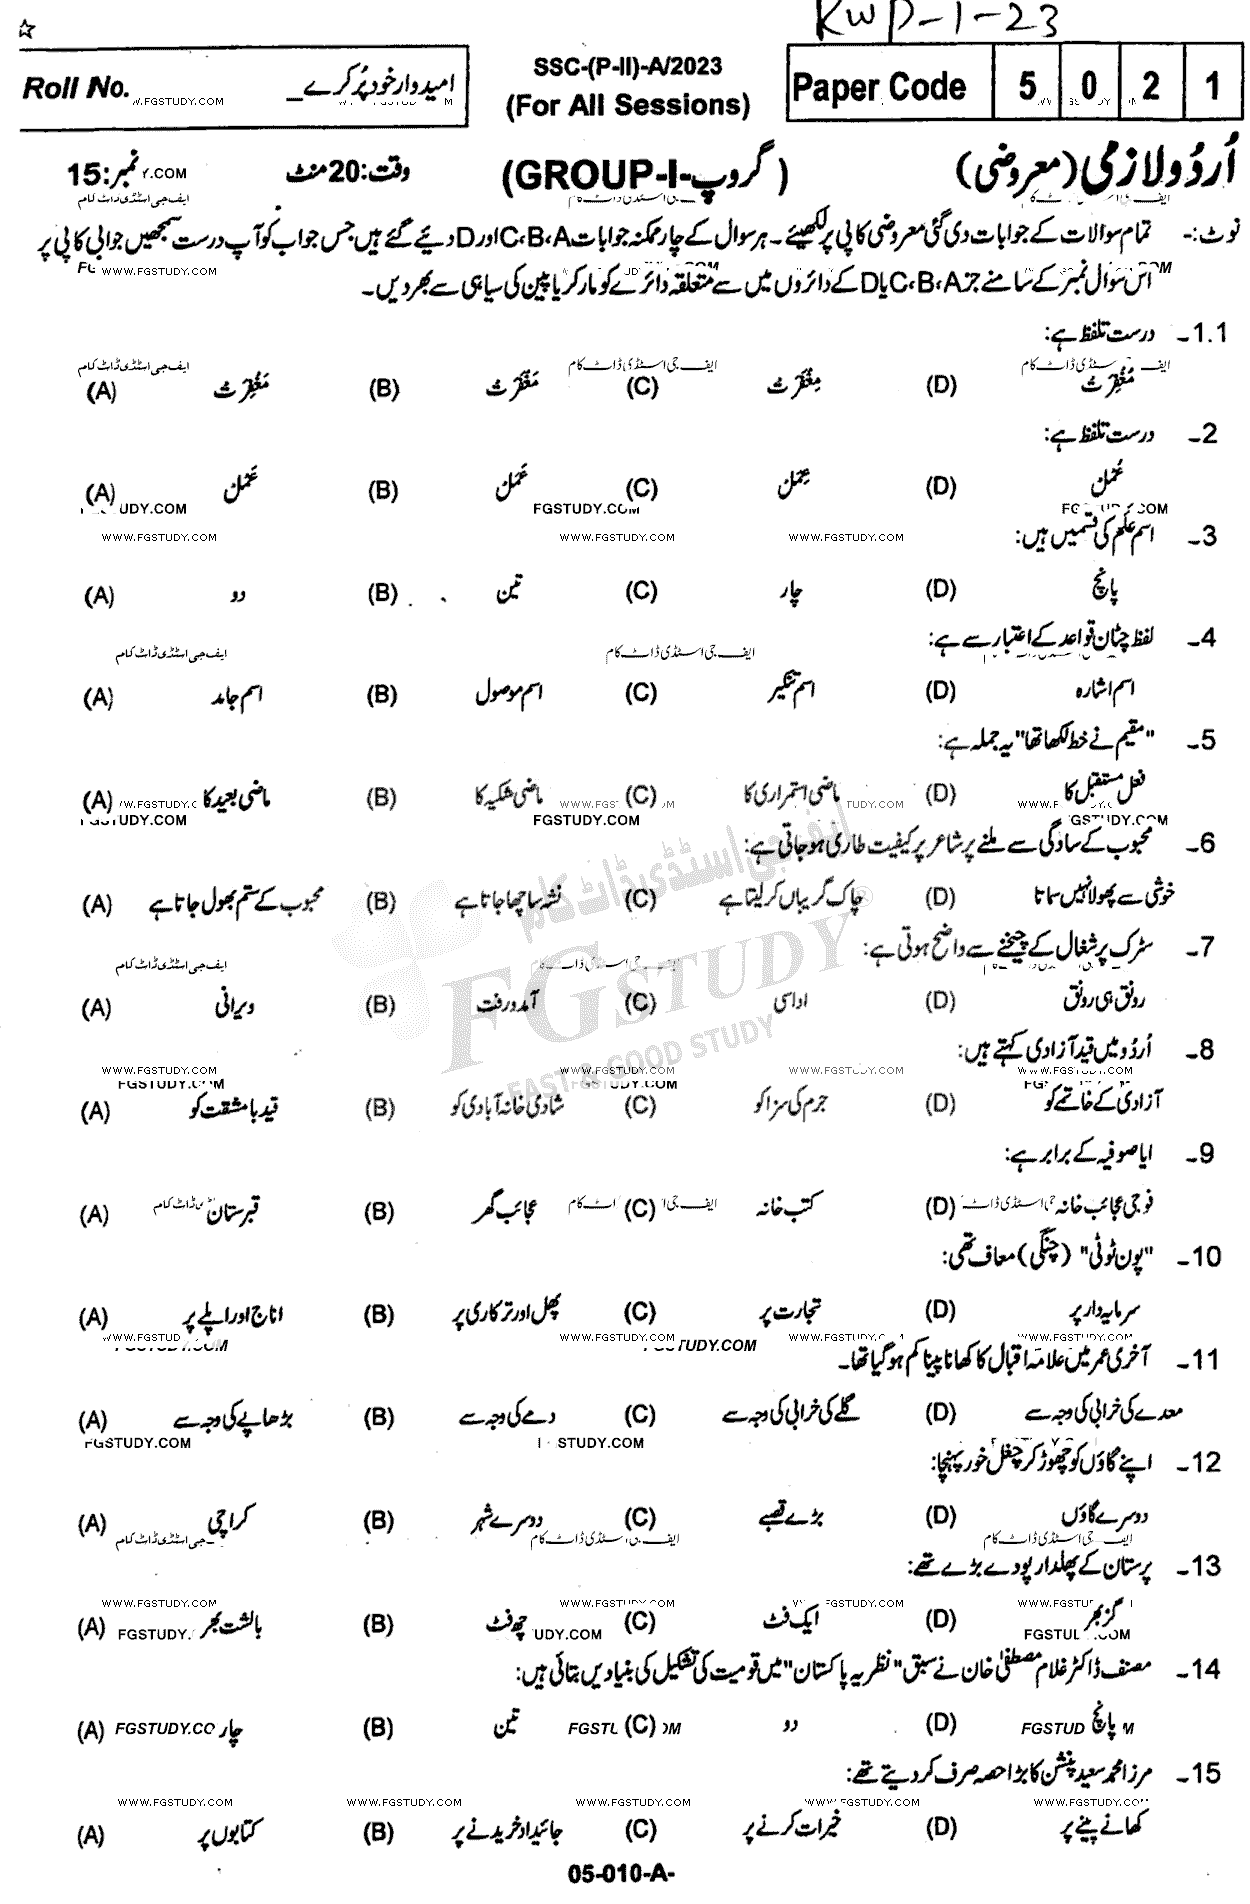 KWP-1-23
☆
Roll No. امیدوار خود پُر کرے_
SSC-(P-II)-A/2023
(For All Sessions)
Paper Code 5 0 2 1
اُردُو لازمی (معروضی) (گروپ-GROUP-I) وقت: 20 منٹ نمبر: 15
نوٹ:- تمام سوالات کے جوابات دی گئی معروضی کاپی پر لکھیئے۔ ہر سوال کے چار ممکنہ جوابات C،B،A اور D دیئے گئے ہیں جس جواب کو آپ درست سمجھیں جوابی کاپی پر
اس سوال نمبر کے سامنے C،B،A یا D کے دائروں میں سے متعلقہ دائرے کو مارکر یا پین کی سیاہی سے بھر دیں۔
1.1۔ درست تلفظ ہے:
(A) مَغْفِرَتْ (B) مَغْفَرَتْ (C) مِغْفَرَتْ (D) مُغْفِرَتْ
2۔ درست تلفظ ہے:
(A) (B) (C) (D)
3۔ اسم علم کی قسمیں ہیں:
(A) دو (B) تین (C) چار (D) پانچ
4۔ لفظ چٹان قواعد کے اعتبار سے ہے:
(A) اسم جامد (B) اسم موصول (C) اسم تنکیر (D) اسم اشارہ
5۔ "مقیم نے خط لکھا تھا" یہ جملہ ہے:
(A) ماضی بعید کا (B) ماضی شکیہ کا (C) ماضی استمراری کا (D) فعل مستقبل کا
6۔ محبوب کے سادگی سے ملنے پر شاعر پر کیفیت طاری ہو جاتی ہے:
(A) محبوب کے ستم بھول جاتا ہے (B) نشہ سا چھا جاتا ہے (C) چاک گریباں کر لیتا ہے (D) خوشی سے پھولا نہیں سماتا
7۔ سڑک پر شغال کے چیخنے سے واضح ہوتی ہے:
(A) ویرانی (B) آمدورفت (C) اداسی (D) رونق ہی رونق
8۔ اُردُو میں قید آزادی کہتے ہیں:
(A) قید با مشقت کو (B) شادی خانہ آبادی کو (C) جرم کی سزا کو (D) آزادی کے خاتمے کو
9۔ ایا صوفیہ کے برابر ہے:
(A) قبرستان (B) عجائب گھر (C) کتب خانہ (D) فوجی عجائب خانہ
10۔ "پون ٹوٹی" (چنگی) معاف تھی:
(A) اناج اور اپلے پر (B) پھل اور ترکاری پر (C) تجارت پر (D) سرمایہ دار پر
11۔ آخری عمر میں علامہ اقبال کا کھانا پینا کم ہو گیا تھا۔
(A) بڑھاپے کی وجہ سے (B) دمے کی وجہ سے (C) گلے کی خرابی کی وجہ سے (D) معدے کی خرابی کی وجہ سے
12۔ اپنے گاؤں کو چھوڑ کر چغل خور پہنچا:
(A) کراچی (B) دوسرے شہر (C) بڑے قصبے (D) دوسرے گاؤں
13۔ پرستان کے پھلدار پودے بڑے تھے:
(A) بالشت بھر (B) چھ فٹ (C) ایک فٹ (D) گز بھر
14۔ مصنف ڈاکٹر غلام مصطفیٰ خان نے سبق "نظریہ پاکستان" میں قومیت کی تشکیل کی بنیادیں بتائی ہیں:
(A) چار (B) تین (C) دو (D) پانچ
15۔ مرزا محمد سعید پنشن کا بڑا حصہ صرف کر دیتے تھے:
(A) کتابوں پر (B) جائیداد خریدنے پر (C) خیرات کرنے پر (D) کھانے پینے پر
05-010-A-
ایف جی اسٹڈی ڈاٹ کام
FGSTUDY
FAST & GOOD STUDY
WWW.FGSTUDY.COM
FGSTUDY.COM